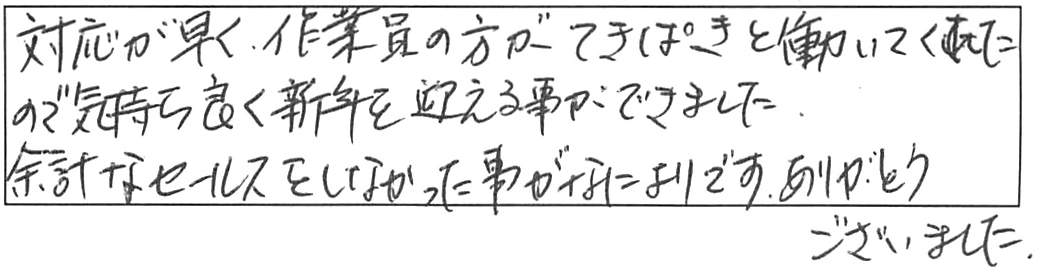 対応が早く、作業員の方がてきぱきと働いてくれた
ので気持ち良く新年を迎える事ができました。
余計なセールスをしなかった事がなによりです。ありがとう
ございました。